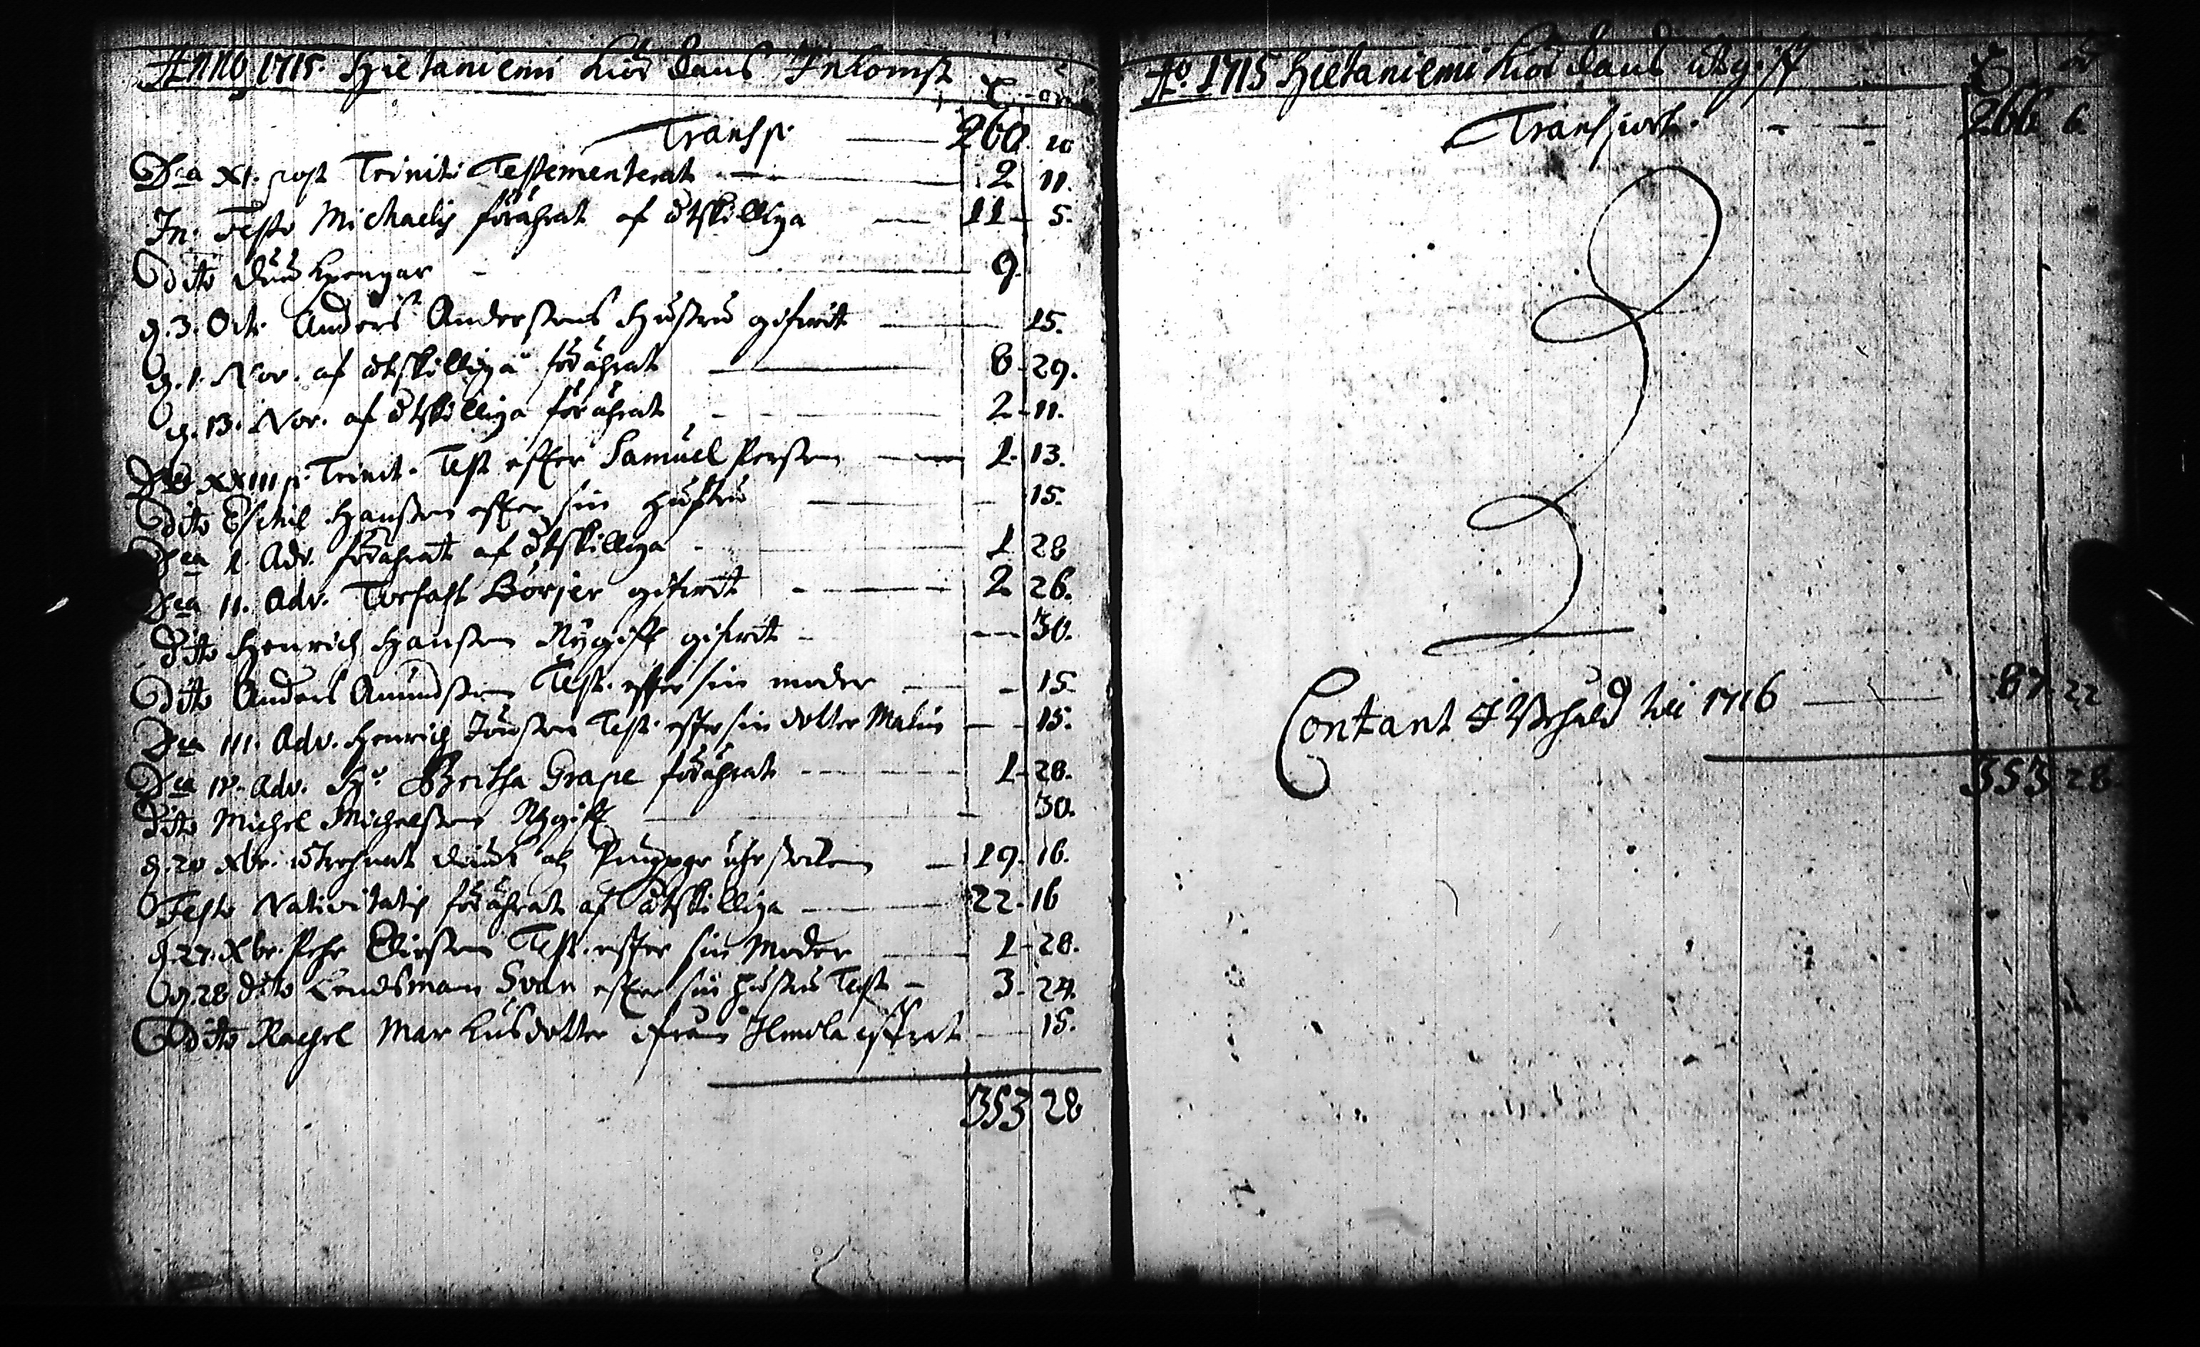 Anno 1715. Hietaniemi Kiörckans Inkomst
Transp. 260. 20
Dca XI. post Trinit: Testementerat 2 11.
In Festo Michaelis förährat af åtskillga 11 5.
Dito 9
d. 3. Oct. Anders Anderssons Hustru gifwit 15.
d. 1. Nov. af åtskilliga förährat 8 29.
d. 13. Nov. af åtskilliga förährat 2 11.
XXIII p. Trinit. Test. effter Samuel Persson 1. 13.
Dito Eschil Hansson effter sin Hustru 15.
Dca I. Adv. förährat af åtskilliga 1 28
Dca II. Adv. Börjer gifwit 2 26.
Dito Henrich Hansson Nygifft gifwit 30.
Dito Anders Amundsson Test. effter sin moder 15.
Dca III. Adv. Henrich Jönsson Test. effter sin dotter Malin 15.
Dca IV. Adv. H. Britha Grape förährat 1 28.
Dito Michel Michelsson Nygifft 30.
d. 20 Xbr. 19 16.
Festo Nativitatis förährat af åtskilliga 22 16
d. 27. Xbr. Pehr Test. effter sin Moder 1 28.
d. 28 dito Lendsman Svan effter sin hustru Test 3. 24.
Dito Rachel Markusdotter ifrån 15.
353 28
Ao. 1715 Hietaniemi Kiörckans utg.
Transport. 266 6.
Contant til 1716 87. 22
353 28